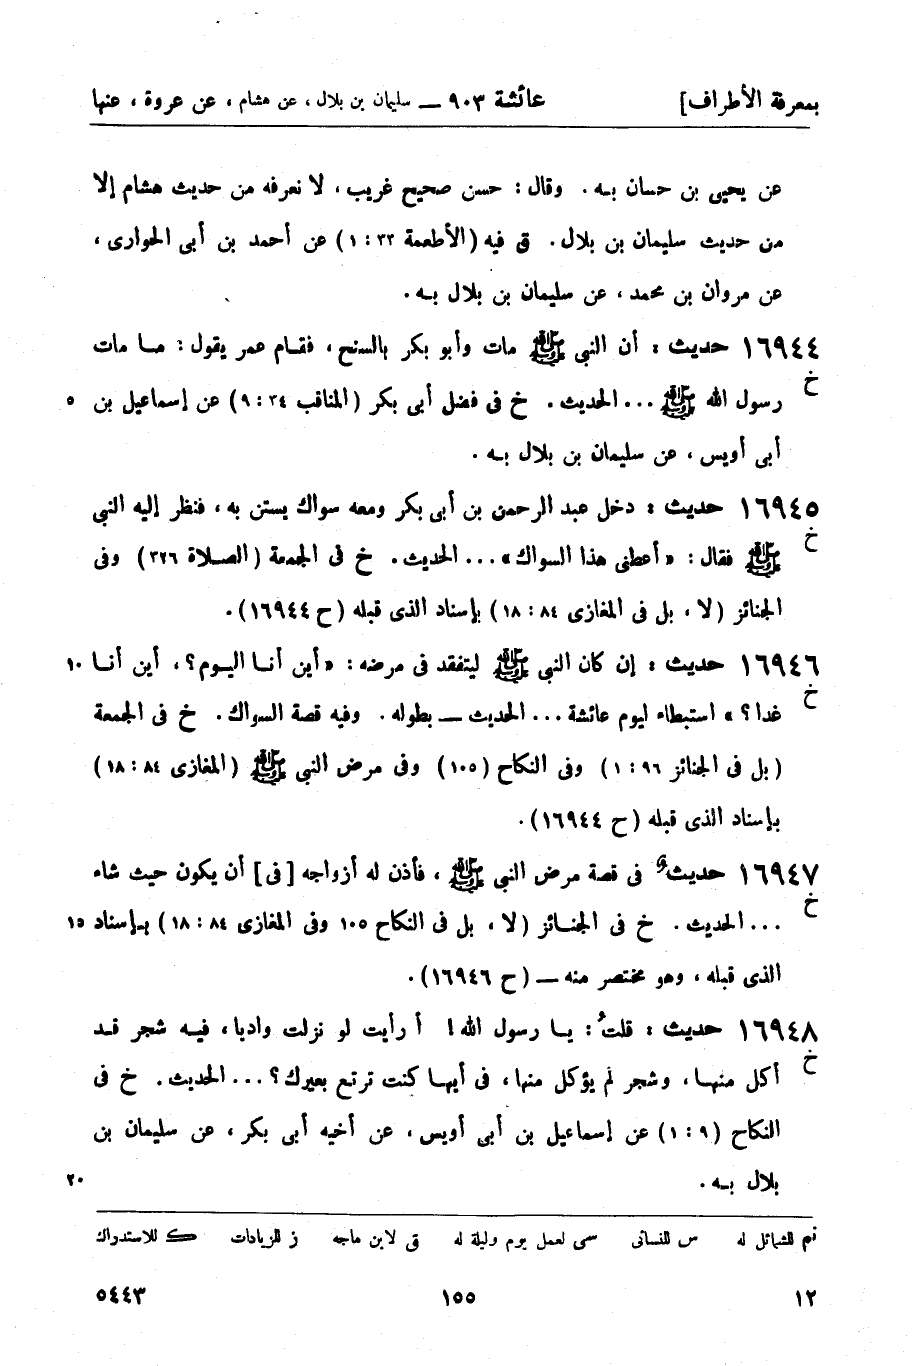 بمعرفة الأطراف] عائشة ٩٠٣ — سليمان بن بلال ، عن هشام ، عن عروة ، عنها
عن يحيى بن حسان بـه . وقال : حسن صحيح غريب ، لا نعرفه من حديث هشام إلا
من حديث سليمان بن بلال . ق فيه (الأطعمة ٣٣ : ١) عن أحمد بن أبى الحوارى ،
عن مروان بن محمد ، عن سليمان بن بلال بـه .
١٦٩٤٤ حديث : أن النبي ﷺ مات وأبو بكر بالسنح ، فقـام عمر يقول : مـا مات
خ رسول الله ﷺ ... الحديث . خ فى فضل أبى بكر (المناقب ٣٤ : ٩) عن إسماعيل بن ٥
أبى أويس ، عن سليمان بن بلال بـه .
١٦٩٤٥ حديث : دخل عبد الرحمن بن أبى بكر ومعه سواك يستن به ، فنظر إليه النبي
خ ﷺ فقال : «أعطنى هذا السواك» ... الحديث . خ فى الجمعة (الصـلاة ٣٢٦) وفى
الجنائز (لا ، بل فى المغازى ٨٤ : ١٨) بإسناد الذى قبله (ح ١٦٩٤٤) .
١٦٩٤٦ حديث : إن كان النبي ﷺ ليتفقد فى مرضه : «أين أنـا اليـوم؟ ، أين أنـا ١٠
خ غدا؟» استبطاء ليوم عائشة ... الحديث — بطوله . وفيه قصة السواك . خ فى الجمعة
(بل فى الجنائز ٩٦ : ١) وفى النكاح (١٠٥) وفى مرض النبي ﷺ (المغازى ٨٤ : ١٨)
بإسناد الذى قبله (ح ١٦٩٤٤) .
١٦٩٤٧ حديث فى قصة مرض النبي ﷺ ، فأذن له أزواجه [فى] أن يكون حيث شاء
خ ... الحديث . خ فى الجنـائز (لا ، بل فى النكاح ١٠٥ وفى المغازى ٨٤ : ١٨) بـإسناد ١٥
الذى قبله ، وهو مختصر منه — (ح ١٦٩٤٦) .
١٦٩٤٨ حديث : قلتُ : يـا رسول الله! أ رأيت لو نزلت واديا ، فيـه شجر قـد
خ أكل منهـا ، وشجر لم يؤكل منها ، فى أيهـا كنت ترتع بعيرك؟ ... الحديث . خ فى
النكاح (٩ : ١) عن إسماعيل بن أبى أويس ، عن أخيه أبى بكر ، عن سليمان بن
بلال بـه . ٢٠
تم للشمائل له س للنسائى سى لعمل يوم وليلة له ق لابن ماجه ز للزيادات ك للاستدراك
١٢ ١٥٥ ٥٤٤٣